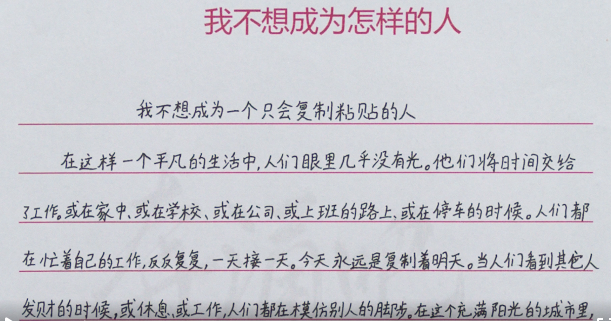 我不想成为怎样的人
我不想成为一个只会复制粘贴的人
在这样一个平凡的生活中,人们眼里几乎没有光。他们将时间交给
了工作。或在家中、或在学校、或在公司、或上班的路上、或在停车的时候。人们都
在忙着自己的工作,反反复复,一天接一天。今天永远是复制着明天。当人们看到其它人
发财的时候,或休息、或工作,人们都在模仿别人的脚步。在这个充满阳光的城市里,